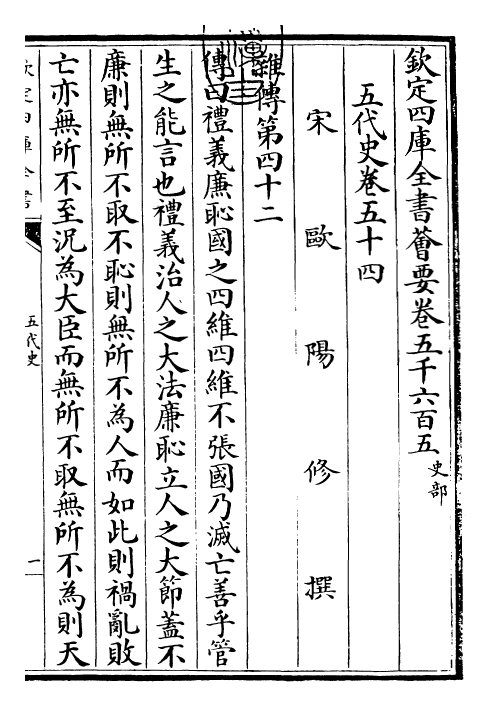 欽定四庫全書薈要卷五千六百五 史部
五代史卷五十四
宋 歐陽修撰
雜傳第四十二
傳曰禮義廉恥國之四維四維不張國乃滅亡善乎管
生之能言也禮義治人之大法廉恥立人之大節蓋不
廉則無所不取不恥則無所不為人而如此則禍亂敗
亡亦無所不至況為大臣而無所不取無所不為則天
欽定四庫全書
五代史
一